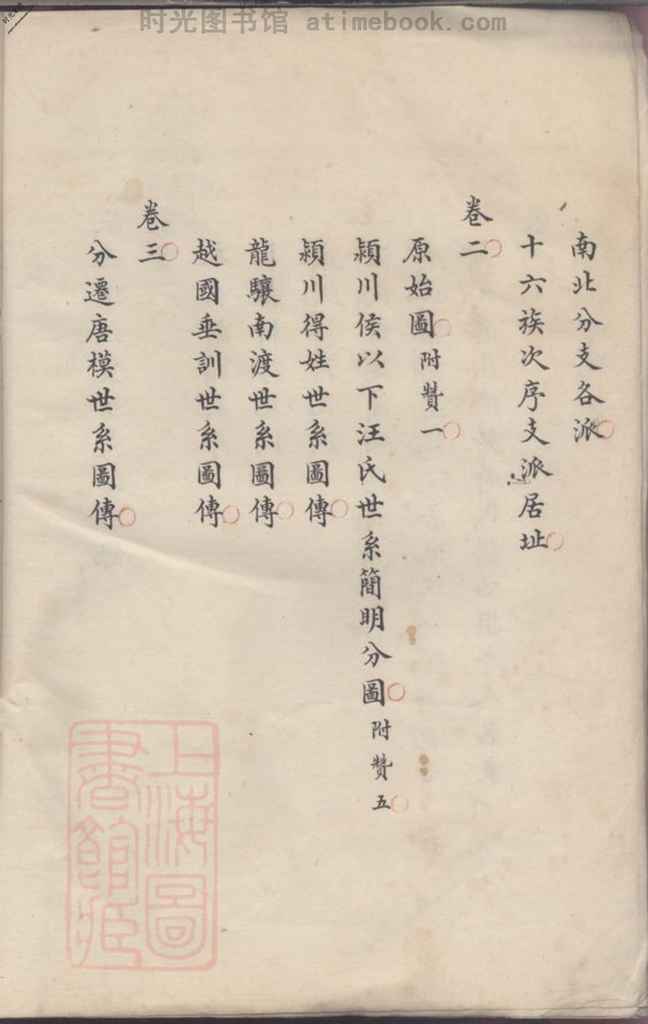 时光图书馆 atimebook.com
南北分支各派
十六族次序支派居址
卷二
原始圖附贊一
潁川侯以下汪氏世系簡明分圖附贊五
潁川得姓世系圖傳
龍驤南渡世系圖傳
越國垂訓世系圖傳
卷三
分遷唐模世系圖傳
上海圖
書館藏